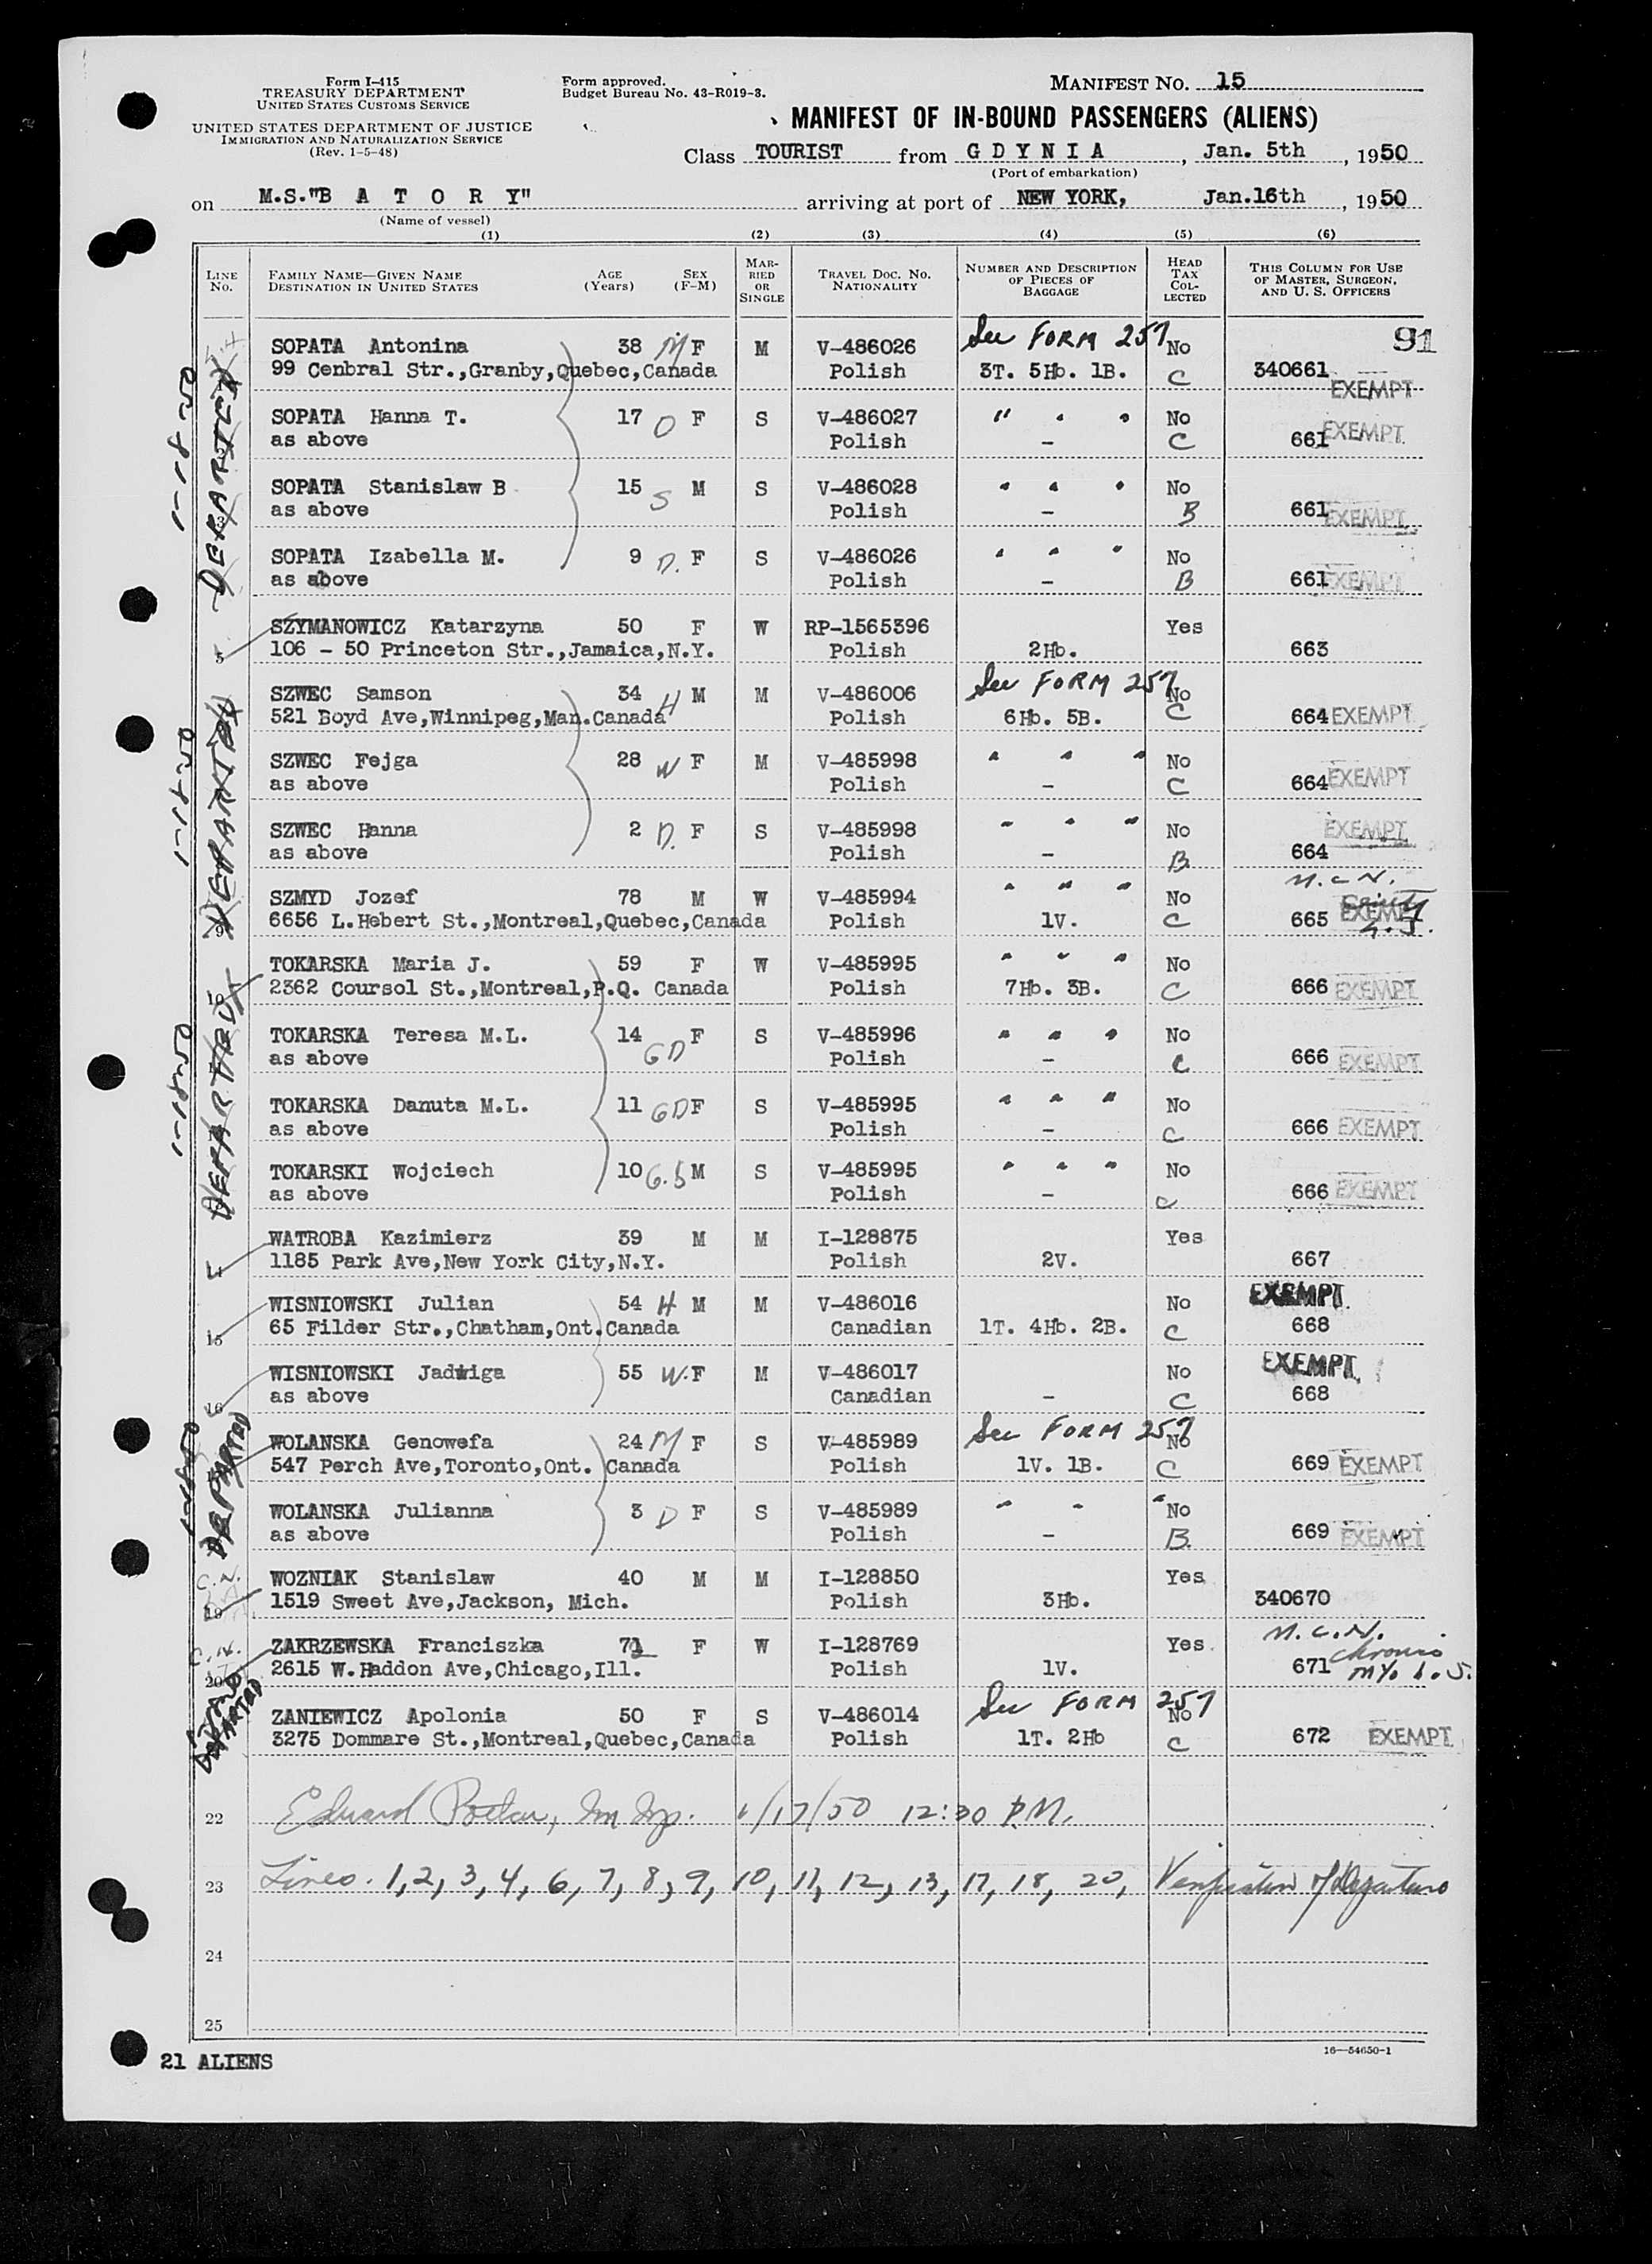 Form I-415
TREASURY DEPARTMENT
UNITED STATES CUSTOMS SERVICE
UNITED STATES DEPARTMENT OF JUSTICE
IMMIGRATION AND NATURALIZATION SERVICE
(Rev. 1-5-48)
Form approved.
Budget Bureau No. 43-R019-3.
MANIFEST NO. 15
MANIFEST OF IN-BOUND PASSENGERS (ALIENS)
Class TOURIST from G D Y N I A, Jan. 5th, 1950
(Port of embarkation)
on M.S."B A T O R Y" arriving at port of NEW YORK, Jan.16th, 1950
(Name of vessel)
(1) (2) (3) (4) (5) (6)
LINE No. FAMILY NAME—GIVEN NAME DESTINATION IN UNITED STATES AGE (Years) SEX (F-M) MARRIED OR SINGLE TRAVEL DOC. NO. NATIONALITY NUMBER AND DESCRIPTION OF PIECES OF BAGGAGE HEAD TAX COLLECTED THIS COLUMN FOR USE OF MASTER, SURGEON, AND U. S. OFFICERS
91
SOPATA Antonina 38 M F M V-486026 See FORM 257 No
99 Cenbral Str.,Granby,Quebec,Canada Polish 3T. 5Hb. 1B. C 340661 EXEMPT
SOPATA Hanna T. 17 D F S V-486027 " " " No
as above Polish - C 661 EXEMPT
SOPATA Stanislaw B 15 S M S V-486028 " " " No
as above Polish - B 661 EXEMPT
SOPATA Izabella M. 9 D. F S V-486026 " " " No
as above Polish - B 661 EXEMPT
SZYMANOWICZ Katarzyna 50 F W RP-1565396 Yes
5 106 - 50 Princeton Str.,Jamaica,N.Y. Polish 2Hb. 663
SZWEC Samson 34 H M M V-486006 See FORM 257 No
521 Boyd Ave,Winnipeg,Man.Canada Polish 6Hb. 5B. C 664 EXEMPT
SZWEC Fejga 28 W F M V-485998 " " " No
as above Polish - C 664 EXEMPT
SZWEC Hanna 2 D. F S V-485998 " " " No EXEMPT
as above Polish - B 664
SZMYD Jozef 78 M W V-485994 " " " No M.C.N.
9 6656 L.Hebert St.,Montreal,Quebec,Canada Polish 1V. C 665 EXEMPT
TOKARSKA Maria J. 59 F W V-485995 " " " No
10 2362 Coursol St.,Montreal,P.Q. Canada Polish 7Hb. 3B. C 666 EXEMPT
TOKARSKA Teresa M.L. 14 GD F S V-485996 " " " No
as above Polish - C 666 EXEMPT
TOKARSKA Danuta M.L. 11 GD F S V-485995 " " " No
as above Polish - C 666 EXEMPT
TOKARSKI Wojciech 10 G.S M S V-485995 " " " No
as above Polish - C 666 EXEMPT
WATROBA Kazimierz 39 M M I-128875 Yes
14 1185 Park Ave,New York City,N.Y. Polish 2V. 667
WISNIOWSKI Julian 54 H M M V-486016 No EXEMPT
15 65 Filder Str.,Chatham,Ont.Canada Canadian 1T. 4Hb. 2B. C 668
WISNIOWSKI Jadwiga 55 W. F M V-486017 No EXEMPT
16 as above Canadian - C 668
WOLANSKA Genowefa 24 M F S V-485989 See FORM 257 No
547 Perch Ave,Toronto,Ont. Canada Polish 1V. 1B. C 669 EXEMPT
WOLANSKA Julianna 3 D F S V-485989 " " " No
as above Polish - B 669 EXEMPT
WOZNIAK Stanislaw 40 M M I-128850 Yes
19 1519 Sweet Ave,Jackson, Mich. Polish 3Hb. 340670
ZAKRZEWSKA Franciszka 72 F W I-128769 Yes M.C.N.
20 2615 W.Haddon Ave,Chicago,Ill. Polish 1V. 671 Chronic
ZANIEWICZ Apolonia 50 F S V-486014 See FORM 257 No
3275 Dommare St.,Montreal,Quebec,Canada Polish 1T. 2Hb C 672 EXEMPT
22 Edward 1/17/50 12:30 P.M.
23 Lines. 1, 2, 3, 4, 6, 7, 8, 9, 10, 11, 12, 13, 17, 18, 20, Verification of departure
24
25
21 ALIENS
16—54650-1
DEPARTED 1-18-50
DEPARTED 1-17-50
DEPARTED 1-18-50
DEPARTED